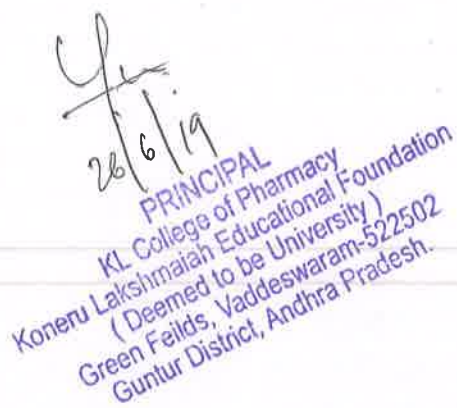 26/6/19
PRINCIPAL
KL College of Pharmacy
Koneru Lakshmaiah Educational Foundation
( Deemed to be University )
Green Feilds, Vaddeswaram-522502
Guntur District, Andhra Pradesh.